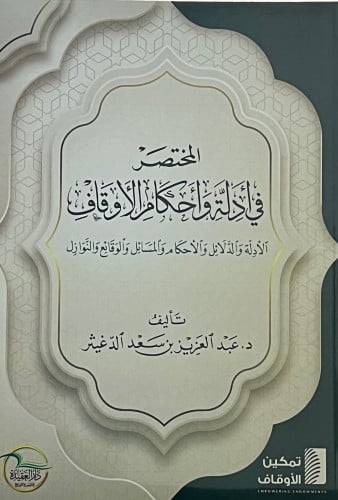 المختصر
في أدلة وأحكام الأوقاف
الأدلة والدلائل والأحكام والمسائل والوقائع والنوازل
تأليف
د. عبد العزيز بن سعد الدغيثر
تمكين
الأوقاف
EMPOWERING ENDOWMENTS
دار العقيدة